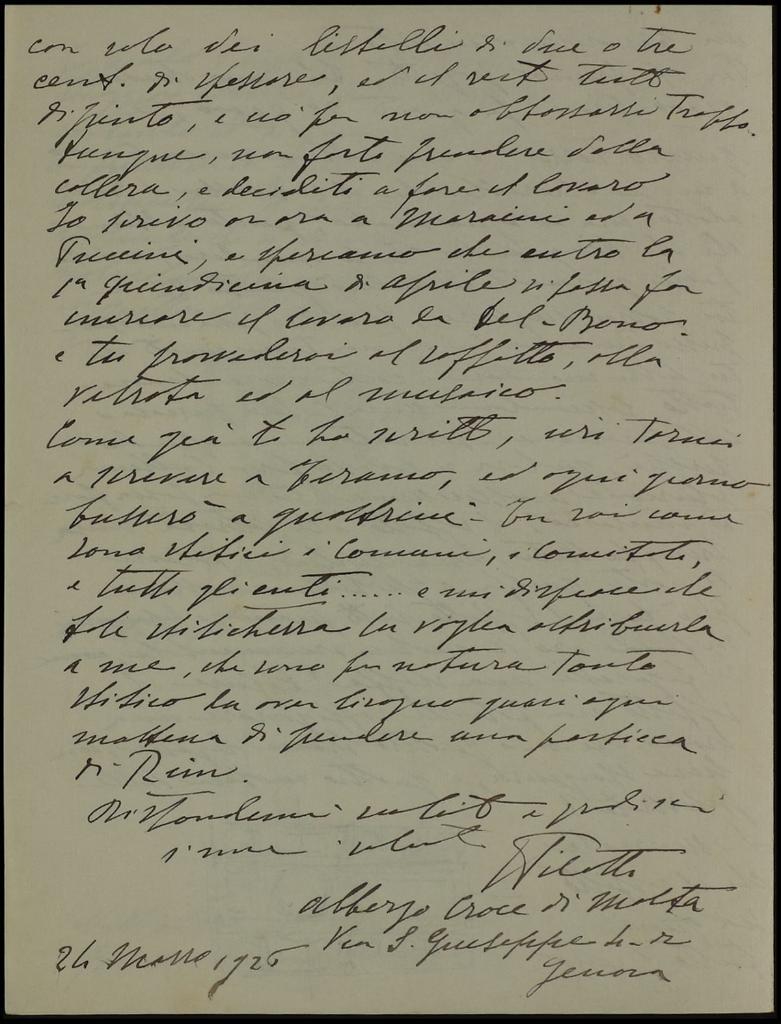 con solo dei listelli di due o tre
cent. di spessore, ed il resto tutto
dipinto, e ciò per non abbassarsi troppo.
Dunque, non farti prendere dalla
collera, e deciditi a fare il lavoro
Io scrivo or ora a Maraini ed a
Puccini, e speriamo che entro la
1ª quindicina di Aprile si possa far
il lavoro da Del-Bono.
e tu provvederai al soffitto, alla
vetrata ed al musaico.
Come già ti ho scritto, ieri tornai
a scrivere a Teramo, ed ogni giorno
busserò a quattrini - Tu sai come
sono stitici i Comuni, i Comitati,
e tutti gli enti ...... e mi dispiace che
tale stitichezza tu voglia attribuirla
a me, che sono per natura tanto
stitico da aver bisogno quasi ogni
mattina di prendere una pasticca
di Rim.
Rispondimi subito e gradisci
i miei saluti
Pilotti
Albergo Croce di Malta
Via S. Giuseppe
Genova
24 Marzo 1926